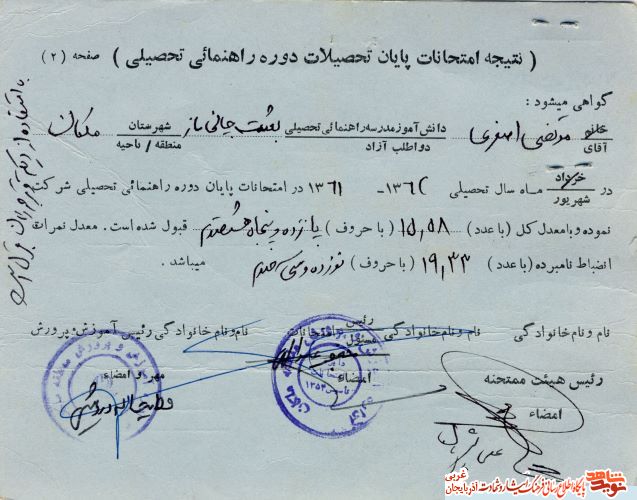 ( نتیجه امتحانات پایان تحصیلات دوره راهنمائی تحصیلی ) صفحه ( ۲ )
گواهی میشود :
خانم
آقای
مرتضی اصغری
دانش آموز مدرسه راهنمائی تحصیلی
دوا طلب آزاد
بعثت
شهرستان
منطقه / ناحیه
ملکان
در
خرداد
شهریور
ماه سال تحصیلی ۱۳۶۲ - ۱۳۶۱ در امتحانات پایان دوره راهنمائی تحصیلی شرکت
نموده و بامعدل کل ( با عدد ) ۱۵,۵۸ ( با حروف ) پانزده و پنجاه هشت صدم قبول شده است . معدل نمرات
انضباط نامبرده ( با عدد ) ۱۹,۳۳ ( با حروف ) نوزده و سی سه صدم میباشد .
نام و نام خانوادگی
نام و نام خانوادگی
رئیس
مسئول
امتحانات
نام و نام خانوادگی رئیس آموزش و پرورش
رئیس هیئت ممتحنه
امضاء
امضاء
مهر و امضاء
با استفاده از
نوید شاهد
پایگاه اطلاع رسانی فرهنگ ایثار و شهادت
آذربایجان غربی